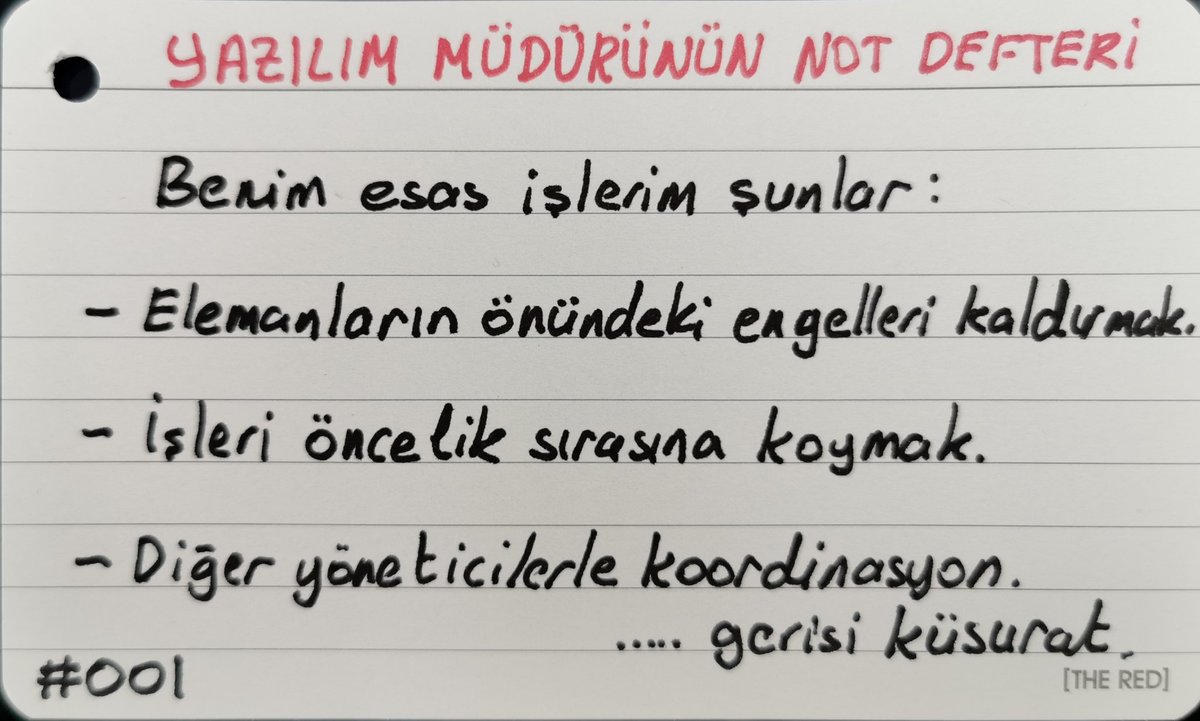 YAZILIM MÜDÜRÜNÜN NOT DEFTERİ
Benim esas işlerim şunlar:
- Elemanların önündeki engelleri kaldırmak.
- İşleri öncelik sırasına koymak.
- Diğer yöneticilerle koordinasyon.
..... gerisi küsurat.
#001
[THE RED]